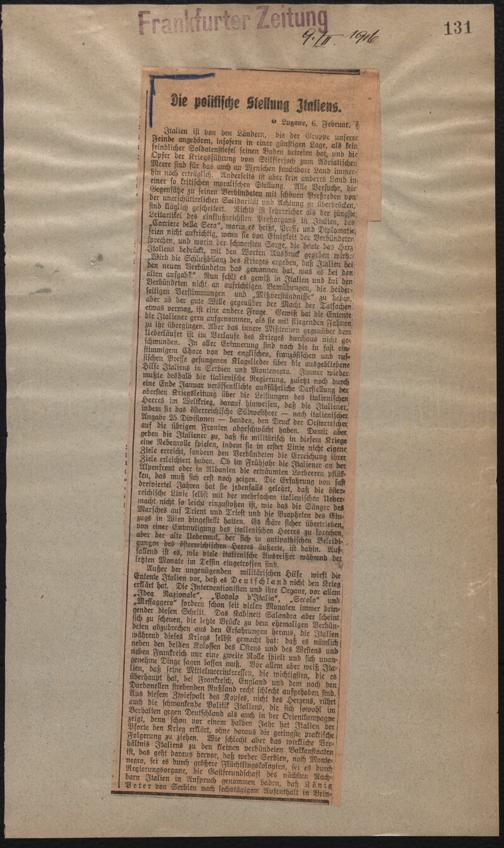 Frankfurter Zeitung
9./II. 1916
131
Die politische Stellung Italiens.
Lugano, 6. Februar.
Italien ist von den Ländern, die der Gruppe unserer
Feinde angehören, insofern in einer günstigen Lage, als kein
feindlicher Soldatenstiefel seinen Boden betreten hat, und die
Opfer der Kriegsführung vom Stilfserjoch zum Adriatischen
Meere sind für das auch an Menschen fruchtbare Land immer-
hin noch erträglich. Anderseits ist aber kein anderes Land in
einer so kritischen moralischen Stellung. Alle Versuche, die
Gegensätze zu seiner Verbündeten mit schönen Preßreden von
der unerschütterlichen Solidarität und Achtung zu überbrücken,
sind kläglich gescheitert. Nichts ist lehrreicher als der jüngste
Leitartikel des einflußreichsten Preßorgans in Italien, des
„Corriere della Sera", worin es heißt, Presse und Diplomatie
seien nicht aufrichtig, wenn sie von Einigkeit der Verbündeten
sprechen, und worin der schwersten Sorge, die heute das Herz
Italiens bedrückt, mit den Worten Ausdruck gegeben wird:
„Wird die Schlußbilanz des Krieges ergeben, daß Italien bei
den neuen Verbündeten das gewonnen hat, was es bei den
alten aufgab?" Nun fehlt es gewiß in Italien und bei den
Verbündeten nicht an aufrichtigen Bemühungen, die beider-
seitigen Verstimmungen und „Mißverständnisse" zu heben,
aber ob der gute Wille gegenüber der Macht der Tatsachen
etwas vermag, ist eine andere Frage. Gewiß hat die Entente
die Italiener gern aufgenommen, als sie mit fliegenden Fahnen
zu ihr übergingen. Aber das innere Mißtrauen gegenüber dem
Ueberläufer ist im Verlaufe des Krieges durchaus nicht ge-
schwunden. In aller Erinnerung sind noch die in fast ein-
stimmigem Chore von der englischen, französischen und rus-
sischen Presse gesungenen Klagelieder über die ausgebliebene
Hilfe Italiens in Serbien und Montenegro. Immer wieder
mußte deshalb die italienische Regierung, zuletzt noch durch
eine Ende Januar veröffentlichte ausführliche Darstellung der
obersten Kriegsleitung über die Leistungen des italienischen
Heeres im Weltkrieg, darauf hinweisen, daß die Italiener,
indem sie das österreichische Südwestheer — nach italienischer
Angabe 25 Divisionen — banden, den Druck der Oesterreicher
auf die übrigen Fronten abgeschwächt haben. Damit aber
geben die Italiener zu, daß sie militärisch in diesem Kriege
eine Nebenrolle spielen, indem sie in erster Linie nicht eigene
Ziele erreicht, sondern den Verbündeten die Erreichung ihrer
Ziele erleichtert haben. Ob im Frühjahr die Italiener an der
Alpenfront oder in Albanien die erträumten Lorbeeren pflük-
ken, das muß sich erst noch zeigen. Die Erfahrung von fast
dreiviertel Jahren hat sie jedenfalls gelehrt, daß die öster-
reichische Linie selbst mit der mehrfachen italienischen Ueber-
macht nicht so leicht einzustoßen ist, wie das die Sänger des
Marsches auf Trient und Triest und die Propheten des Ein-
zugs in Wien hingestellt haben. Es wäre sicher übertrieben,
von einer Entmutigung des italienischen Heeres zu sprechen,
aber der alte Uebermut, der sich in
gungen des österreichischen Heeres äußerte, ist dahin. Auf-
fallend ist es, wie viele italienische Ausreißer während der
letzten Monate im Tessin eingetroffen sind.
Außer der ungenügenden militärischen Hilfe wirft die
Entente Italien vor, daß es Deutschland nicht den Krieg
erklärt hat. Die Interventionisten und ihre Organe, vor allem
„Idea Nazionale", „Popolo d'Italia", „Secolo" und
„Messaggero" fordern schon seit vielen Monaten immer drin-
gender diesen Schritt. Das Kabinett Salandra aber scheint
sich zu scheuen, die letzte Brücke zu den ehemaligen Verbün-
deten abzubrechen aus den Erfahrungen heraus, die Italien
während dieses Kriegs selbst gemacht hat: daß es nämlich
neben den beiden Kolossen des Ostens und des Westens und
neben Frankreich nur eine zweite Rolle spielt und sich unan-
genehme Dinge sagen lassen muß. Vor allem aber weiß Ita-
lien, daß seine Mittelmeerinteressen, die wichtigsten, die es
überhaupt hat, bei Frankreich, England und dem nach den
Dardanellen strebenden Rußland recht schlecht aufgehoben sind.
Aus diesem Zwiespalt des Kopfes, nicht des Herzens, rührt
auch die schwankende Politik Italiens, die sich sowohl im
Verhalten gegen Deutschland als auch in der Orientkampagne
zeigt, denn schon vor einem halben Jahr hat Italien der
Pforte den Krieg erklärt, ohne daraus die geringste praktische
Folgerung zu ziehen. Wie schlecht aber das wirkliche Ver-
hältnis Italiens zu den kleinen verbündeten Balkanstaaten
ist, das geht daraus hervor, daß weder Serbien, noch Monte-
negro, sei es durch größere Flüchtlingskolonien, sei es durch
Regierungsorgane, die Gastfreundschaft des nächsten Nach-
barn Italien in Anspruch genommen haben, daß König
Peter von Serbien nach sechstägigem Aufenthalt in Brin-